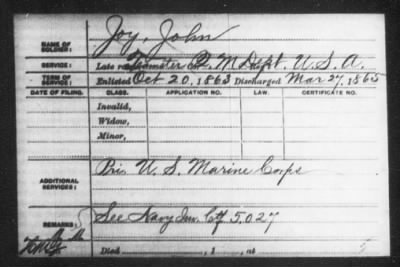 NAME OF SOLDIER: Joy, John
SERVICE: Late Teamster Q. M Dept. U. S. A.
TERM OF SERVICE: Enlisted Oct 20, 1863 Discharged Mar 27, 1865
DATE OF FILING. CLASS. APPLICATION NO. LAW. CERTIFICATE NO.
Invalid,
Widow,
Minor,
ADDITIONAL SERVICES: Pris U. S. Marine Corps
REMARKS: See Navy Inv. Ctf 5.027
Died , 1 , at